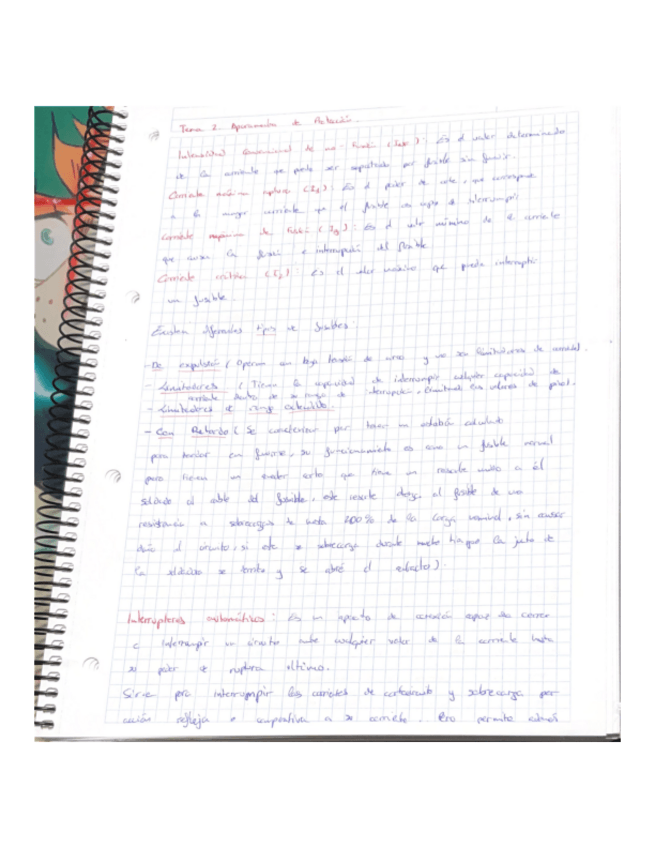 Tema 2. Aparamenta de Protección.
Intensidad convencional de no fusión (Inf): Es el valor determinado
de la corriente que puede ser soportada por fusible sin fundir.
Corriente máxima ruptura (I1): Es el poder de corte, que corresponde
a la mayor corriente que el fusible es capaz de interrumpir
Corriente mínima de fusión (I3): Es el valor mínimo de la corriente
que causa la fusión e interrupción del fusible.
Corriente crítica (I2): Es el valor máximo que puede interrumpir
un fusible
Existen diferentes tipos de fusibles:
-De expulsión (Operan con baja tensión de arco y no son limitadores de corriente).
- Limitadores (Tienen la capacidad de interrumpir cualquier capacidad de
corriente dentro de su rango de interrupción, limitando los valores de pico).
- Limitadores de rango extendido.
- Con Retardo (Se caracterizan por tener un estaño calculado
para tardar en fundirse, su funcionamiento es como un fusible normal
pero tienen un
corto que tiene un resorte unido a él
soldado al cable del fusible, este resorte
al fusible de una
resistencia a sobrecargas de hasta 200% de la carga nominal, sin causar
daño al circuito, si este se sobrecarga durante mucho
que la junta de
la soldadura se
y se abre el
).
Interruptores automáticos: Es un aparato de conexión capaz de cerrar
e interrumpir un circuito ante cualquier valor de la corriente hasta
su poder de ruptura último.
Sirven para interrumpir las corrientes de cortocircuito y sobrecarga por
acción refleja o
a su corriente. Pero permite